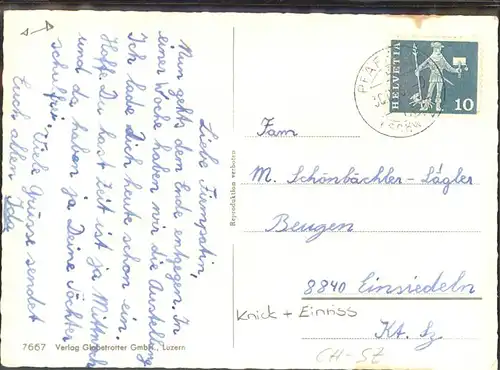 Liebe Firmpatin,
Nun gehts dem Ende entgegen. In
einer Woche haben wir die Austellung
Ich lade Dich heute schon ein.
Hoffe Du hast Zeit ist ja Mittwoch
und da haben ja Deine Töchter
schulfrei. Viele Grüsse sendet
Euch allen Ida
7667 Verlag Globetrotter GmbH., Luzern
Reproduktion verboten
HELVETIA
10
Fam
M. Schönbächler-Kägler
Beugen
8840 Einsiedeln
Knick + Einriss
Kt. Sz
CH-SZ